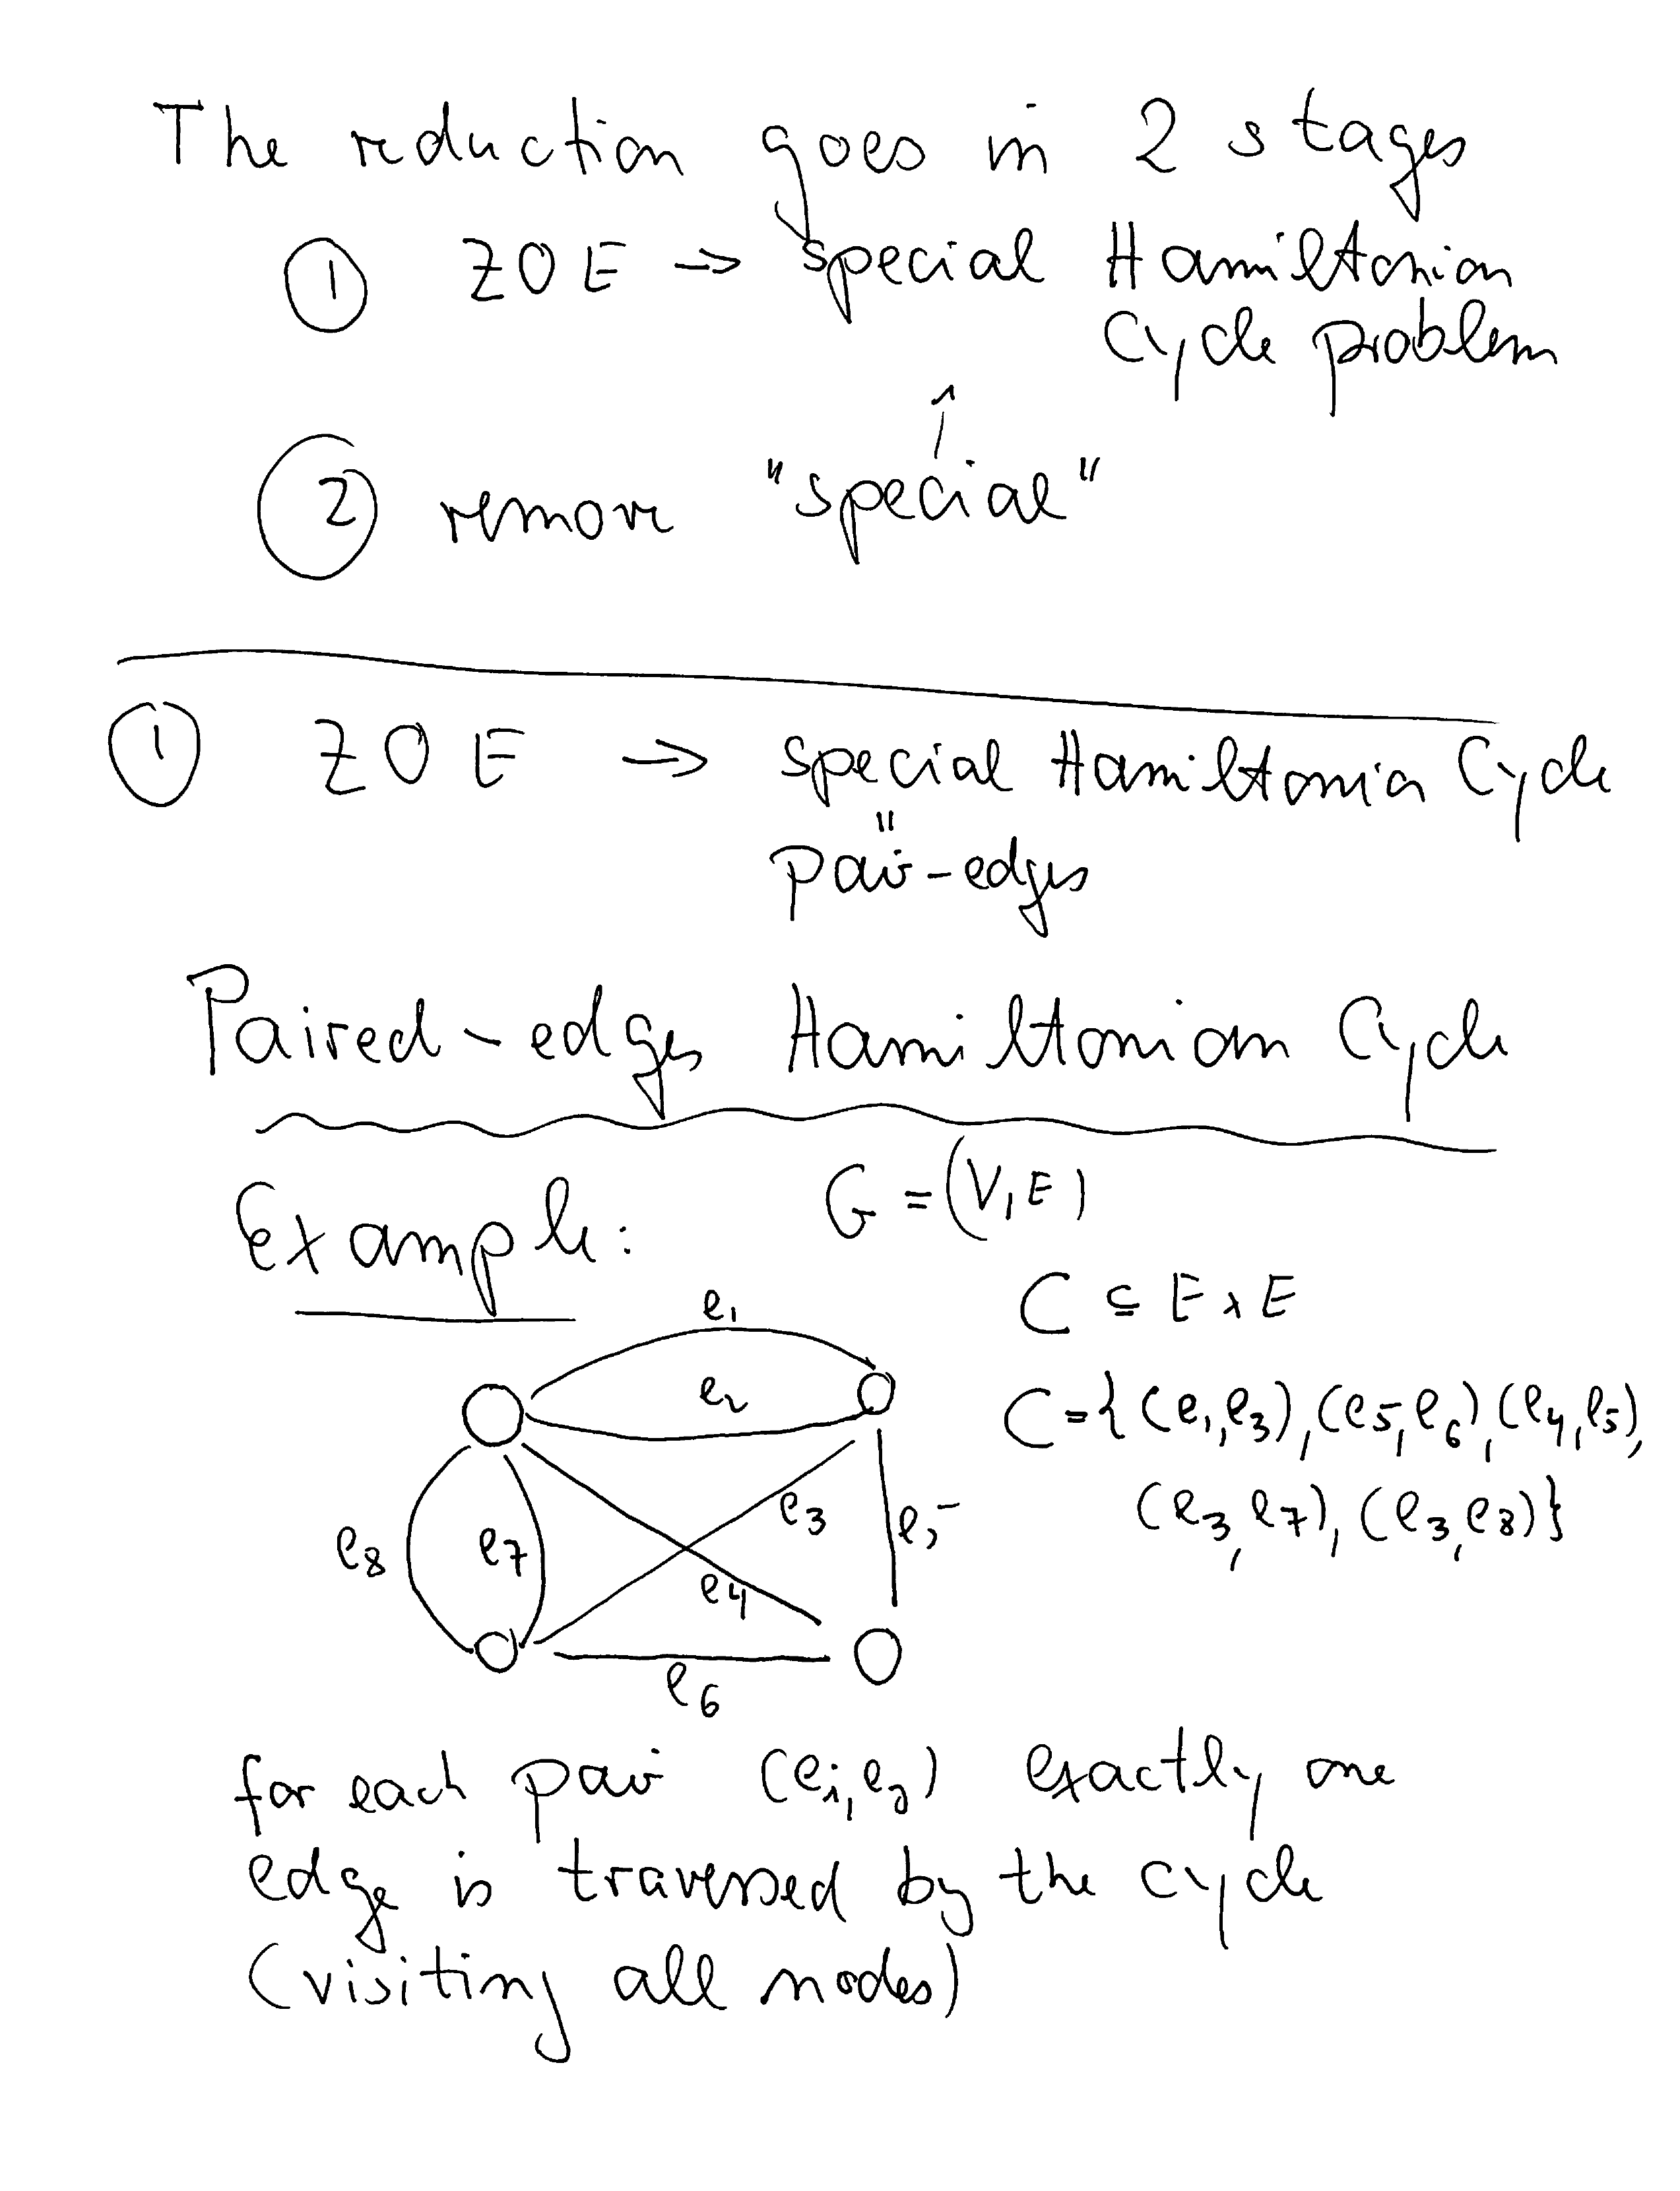 The reduction goes in 2 stages
① ZOE → special Hamiltonian
Cycle problem
↑
② remove "special"
① ZOE → special Hamiltonian Cycle
"
pair-edges
Paired-edges Hamiltonian Cycle
Example: G = (V, E)
C ⊆ E x E
C = {(e1, e3), (e5, e6), (e4, e5),
(e3, e7), (e3, e8)}
e1
e2
e3
e5
e8
e7
e4
e6
for each pair (ei, ej) exactly one
edge is traversed by the cycle
(visiting all nodes)